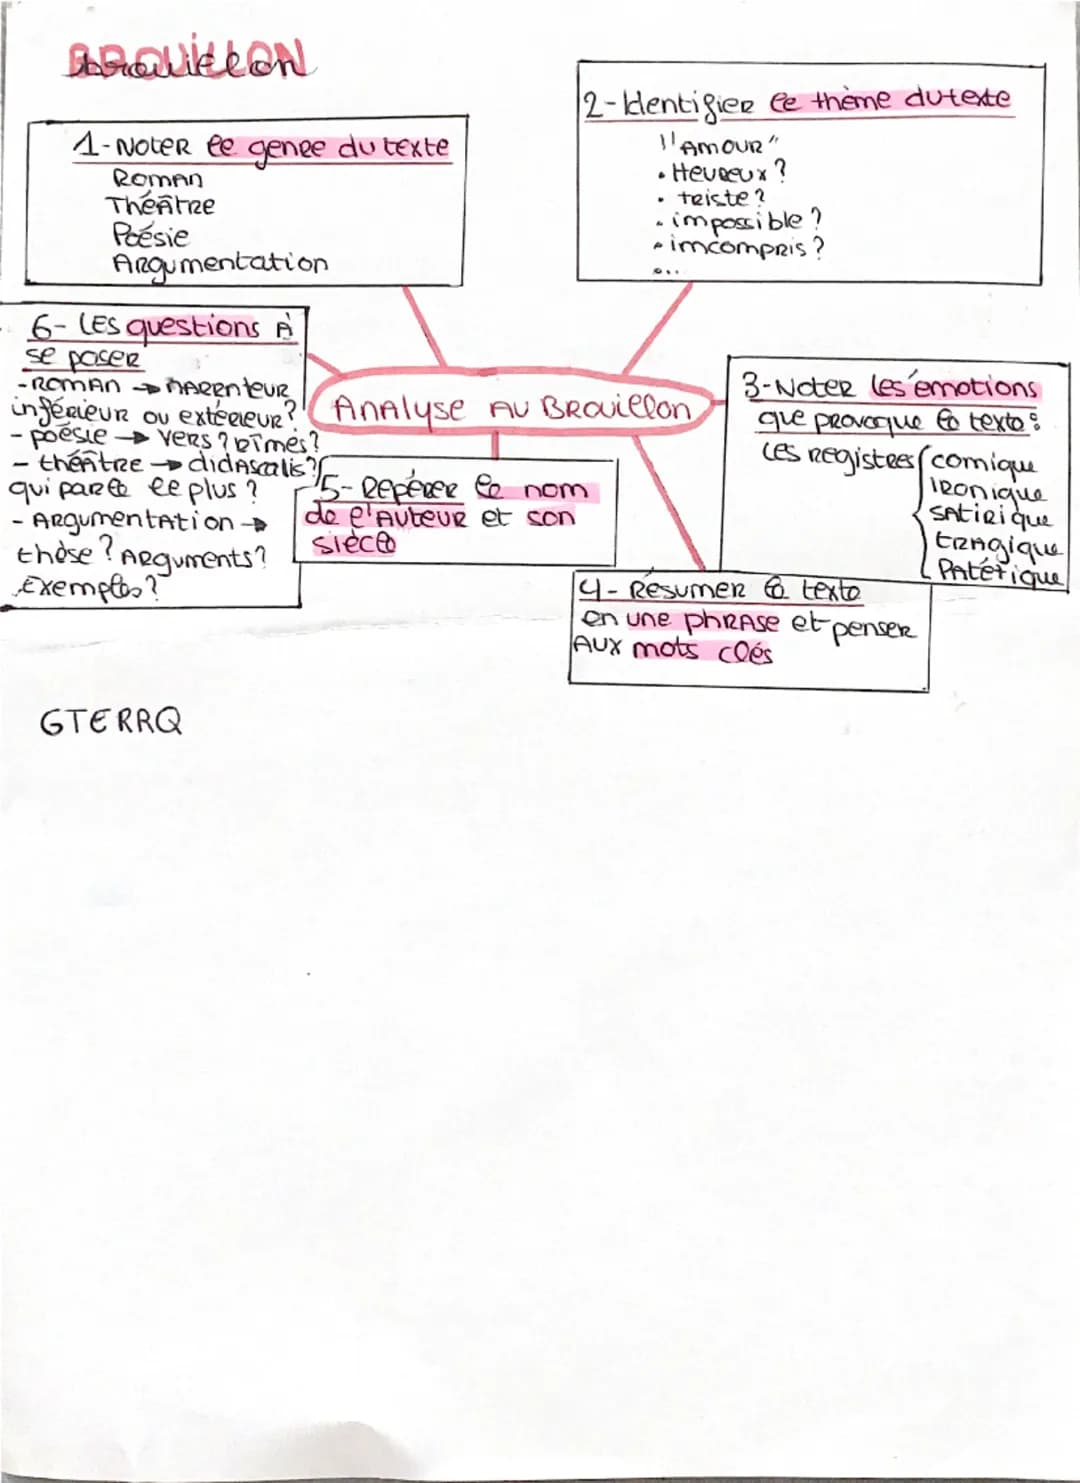 BROUILLON
brouillon
1-Noter le genre du texte
Roman
Théâtre
Poésie
Argumentation
2-Identifier le thème du texte
"Amour"
• Heureux ?
• triste ?
• impossible ?
• imcompris ?
...
6- Les questions à
se poser
-Roman → narrenteur
inférieur ou extérieur ?
- poésie → vers ? rimes ?
- théâtre → didascalis ?
qui parle le plus ?
- Argumentation →
thèse ? Arguments ?
Exemples ?
Analyse au Brouillon
3-Noter les émotions
que provoque le texte :
Les registres { comique
ironique
satirique
tragique
Patétique
5- Repérer le nom
de l'auteur et son
siècle
4- Résumer le texte
en une phrase et penser
aux mots clés
GTERRQ